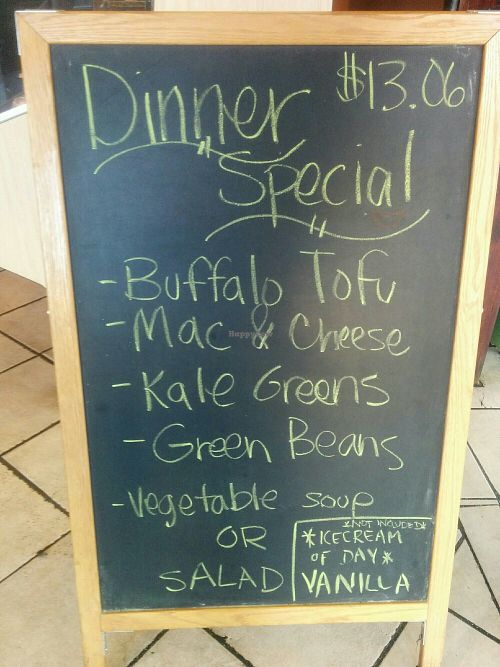 Dinner $13.06
Special
- Buffalo Tofu
- Mac & Cheese
- Kale Greens
- Green Beans
- Vegetable soup
OR
SALAD
*NOT INCLUDED*
*ICECREAM
OF DAY*
VANILLA